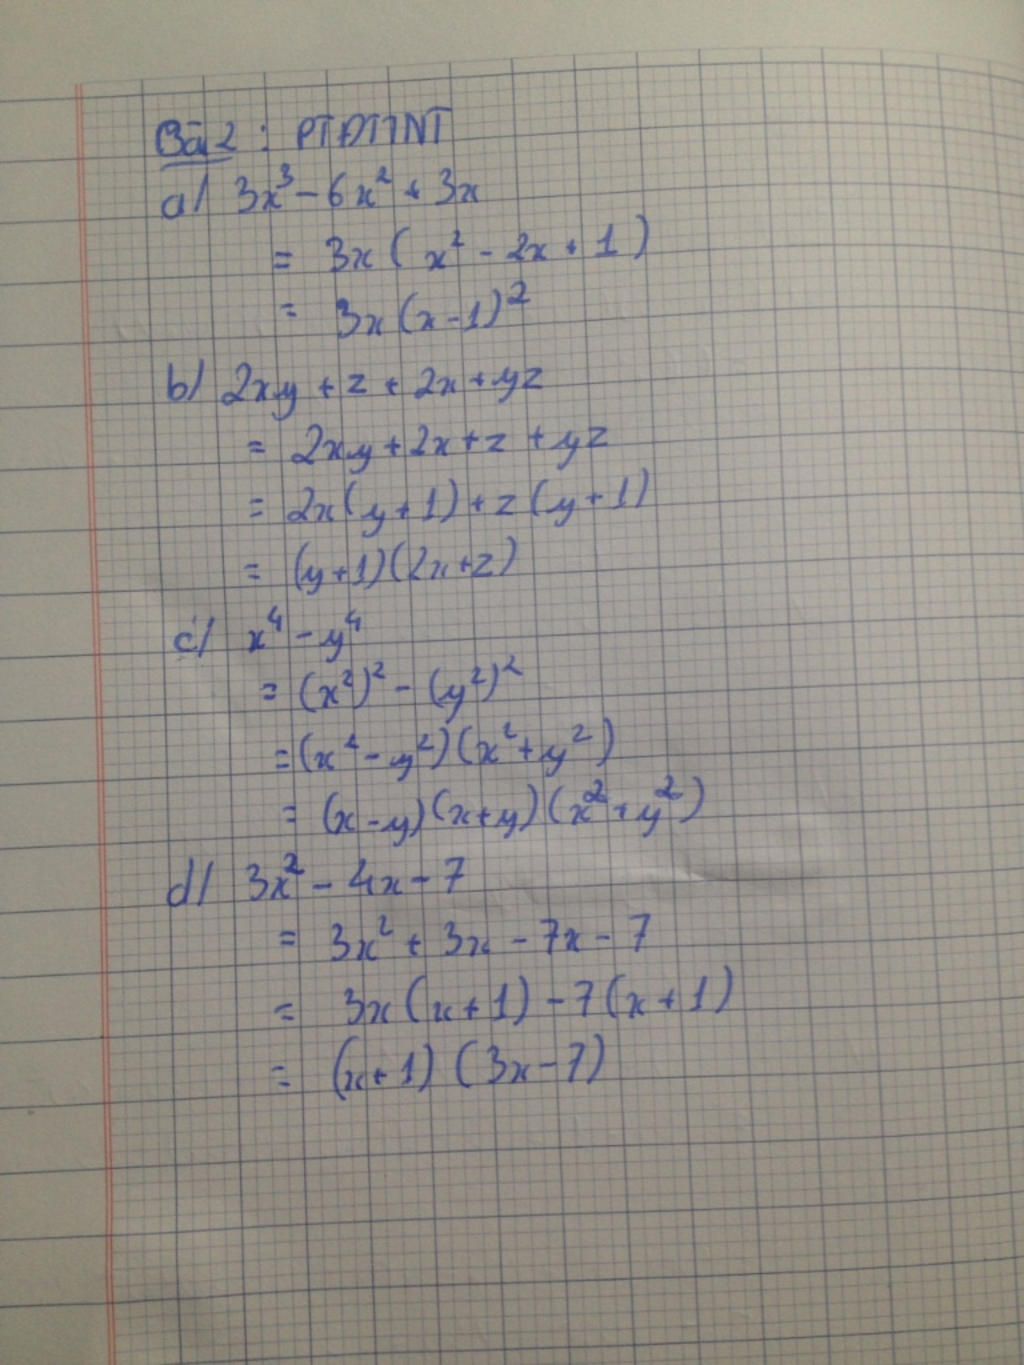 Bài 2 : PTĐTTNT
a/ 3x³ - 6x² + 3x
= 3x ( x² - 2x + 1 )
= 3x (x - 1)²
b/ 2xy + z + 2x + yz
= 2xy + 2x + z + yz
= 2x (y + 1) + z (y + 1)
= (y + 1)(2x + z)
c/ x⁴ - y⁴
= (x²)² - (y²)²
= (x² - y²) (x² + y²)
= (x - y) (x + y) (x² + y²)
d/ 3x² - 4x - 7
= 3x² + 3x - 7x - 7
= 3x (x + 1) - 7 (x + 1)
= (x + 1) (3x - 7)